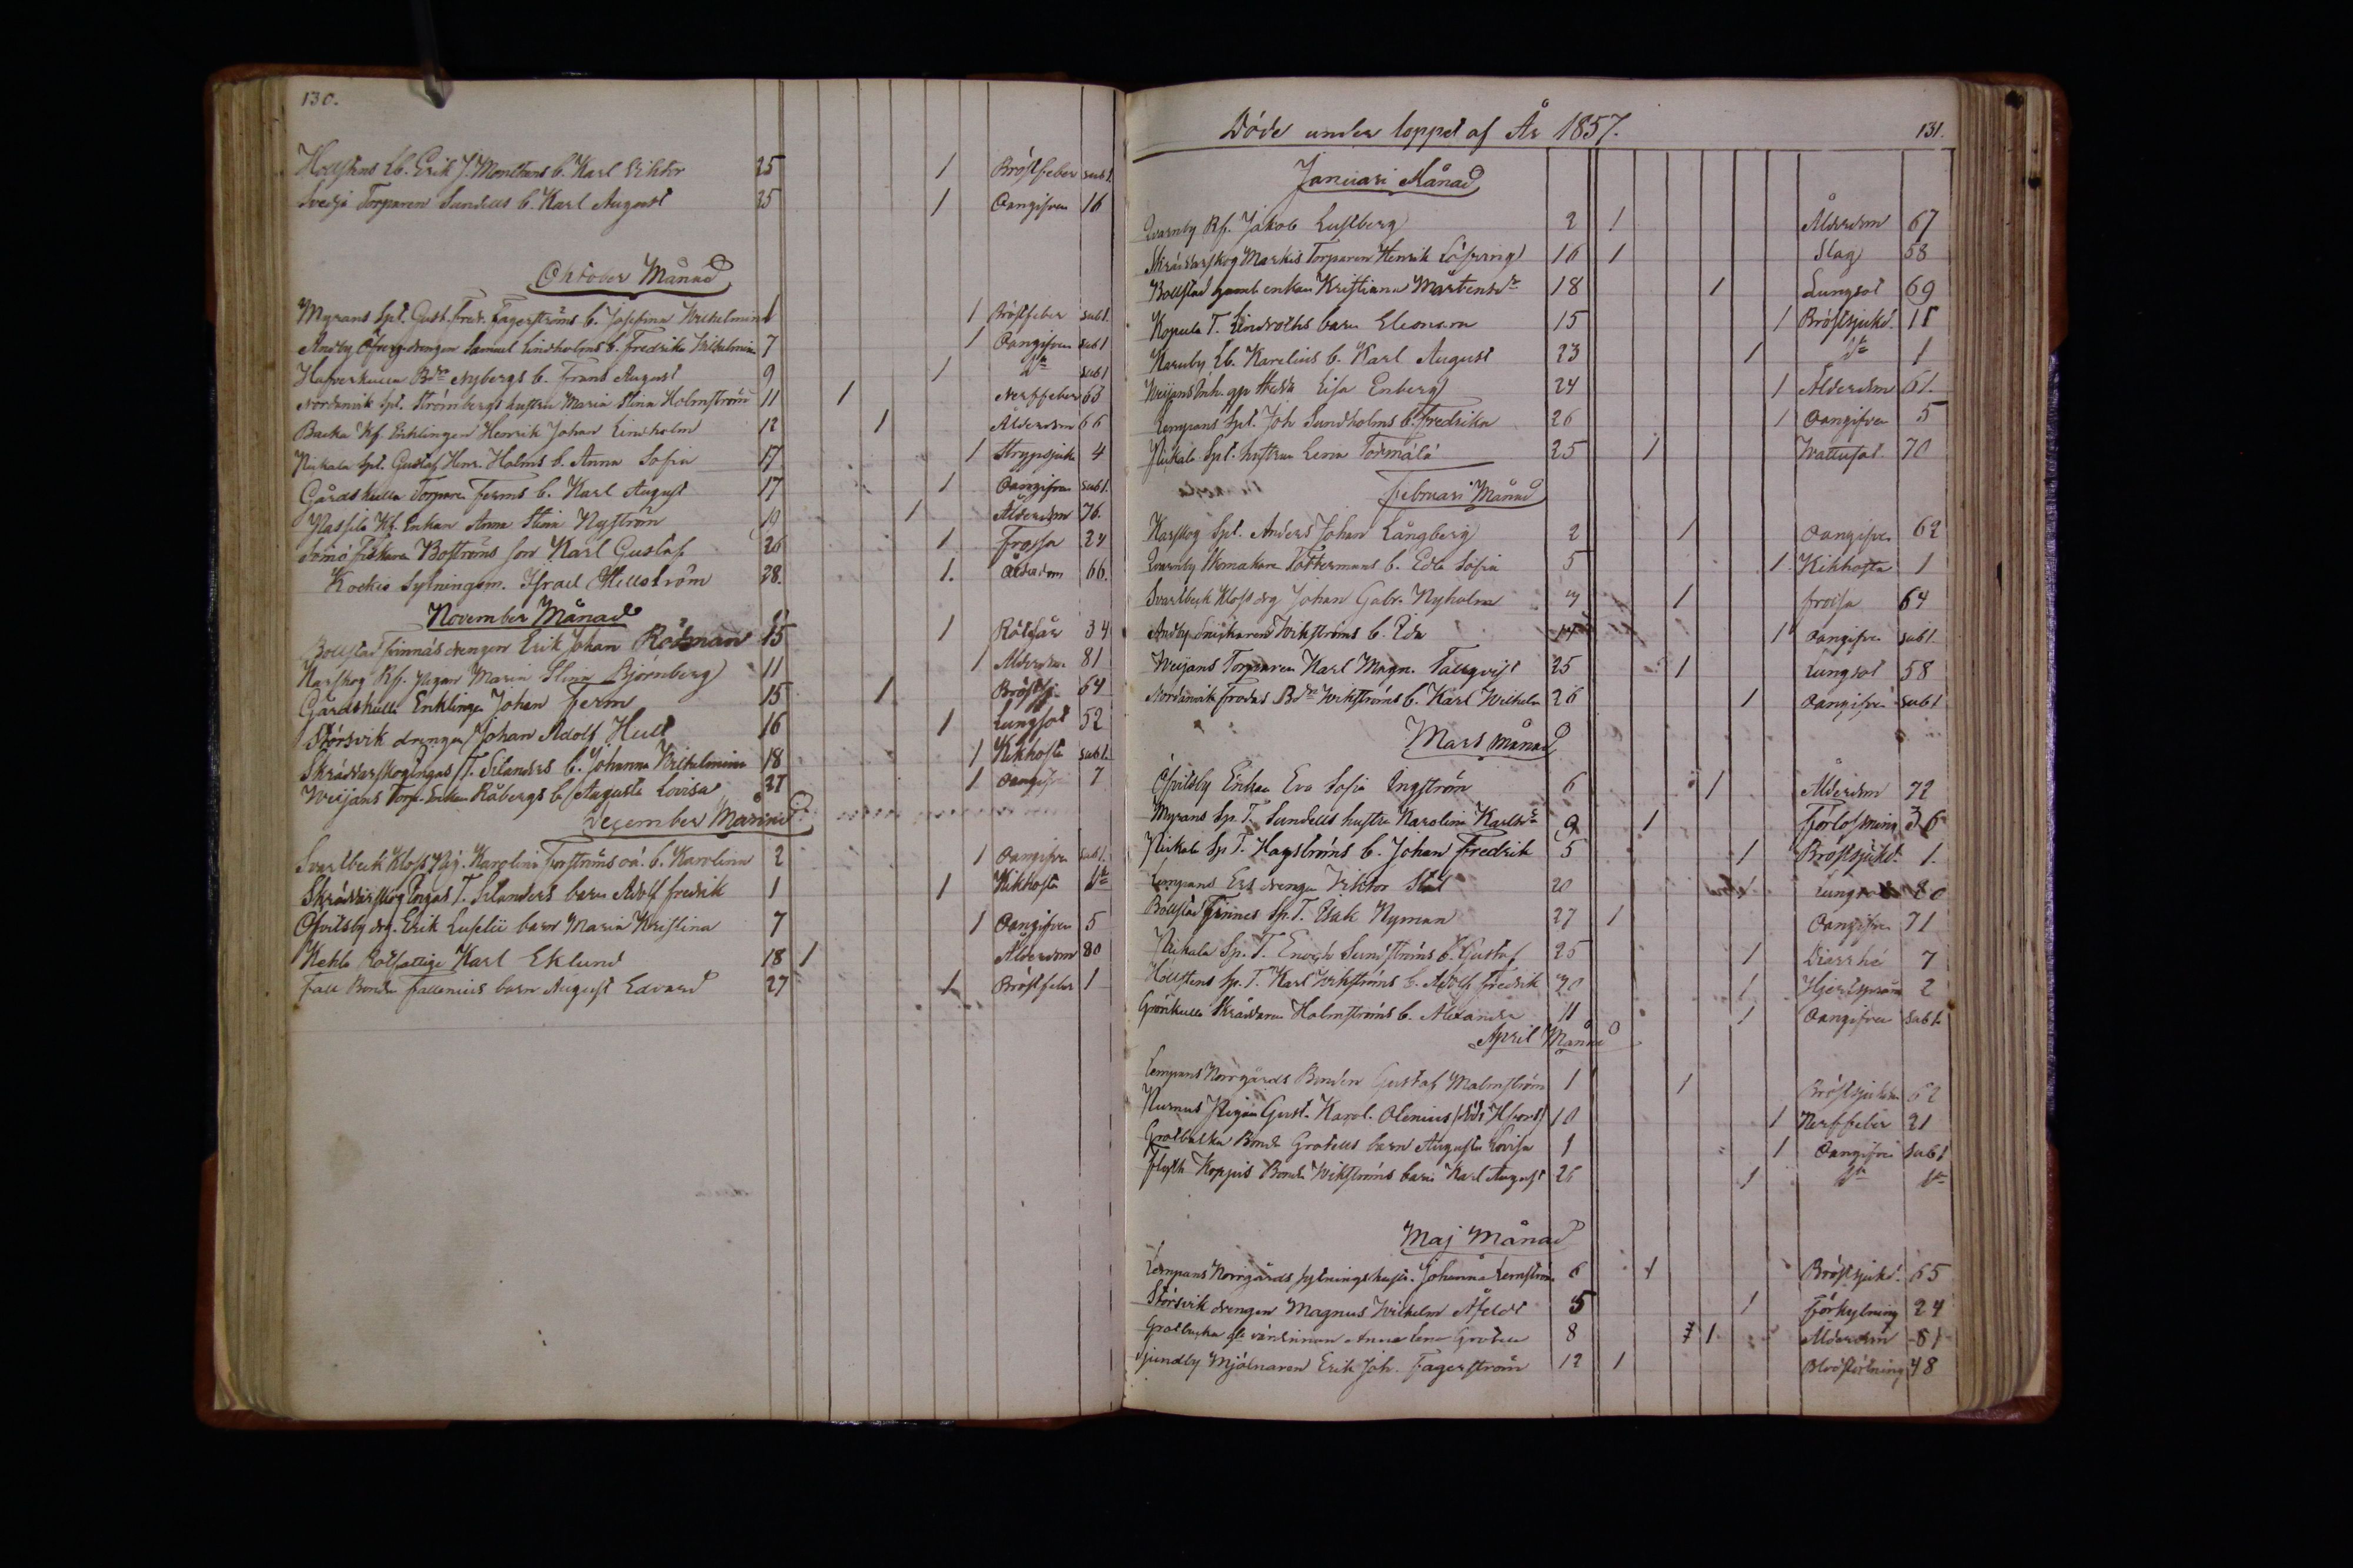 130.
Hollstens Lb. Erik J. Monthens b. Karl Viktor 25 1 Bröstfeber sub1.
Svedja Torparen Sundells b. Karl August 25 1 Oangifven 16
Oktober Månad
Myrans Spt. Gust. Fred. Fagerströms b. Josefina Wilhelmina 1 1 Bröstfeber sub1.
Andby drengen Samuel Lindholms b. Fredrika Wilhelmina 7 1 Oangifven sub1
Hafverkulla Bdn Nybergs b. Frans August 9 1 Do sub1
Nordanvik Spt. Strömbergs hustru Maria Stina Holmström 11 1 Nerffeber 63
Backa Kf. Enklingen Henrik Johan Lindholm 12 1 Ålderdom 66
Nickala Spt. Gustaf Henr. Holms b. Anna Sofia 17 1 Strypsjuka 4
Gårdskulla Torpare Ferms b. Karl August 17 1 Oangifven sub1.
Kf. Enkan Anna Stina Nyström 19 1 Ålderdom 76.
Fiskaren Boströms son Karl Gustaf 26 1 Frossa 24
Kockis Sytningsm. Israel Hellström 28. 1. Ålderdom 66.
November Månad
Bollstad Finnäs drengen Erik Johan Rosman 15 1 Rötfår 34
Karskog Rf. Pigan Maria Stina Björnberg 11 1 Ålderdom 81
Gårdskulla Enklingen Johan Ferm 15 1 Bröstsj. 64
Störsvik drengen Johan Adolf Hult 16 1 Lungsot 52
Skräddarskog Ingas T. Silanders b. Johanna Wilhelmina 18 1 Kikhosta sub1.
Weijans Torp. Enkan Råbergs b. Augusta Lovisa 27 1 Oangifven 7
December Månad
Svartbeck Kloss Pig. Karolina Forströms oä. b. Karolina 2 1 Oangifven sub1.
Skräddarskog Ingas T. Silanders barn Adolf Fredrik 1 1 Kikhosta Do
Ofvitsby drg. Erik barn Maria Kristina 7 1 Oangifven 5
Kehla Rotfattige Karl Eklund 18 1 Ålderdom 80
Fall Bonden Fallenius barn August Edvard 27 1 Bröstfeber 1
Döde under loppet af År 1857. 131.
Januari Månad
Qvarnby Rf. Jakob Lustberg 2 1 Ålderdom 67
Skräddarskog Markis Torparen Henrik Löfving 16 1 Slag 58
Bollstad enkan Kristiana Mårtensdr 18 1 Lungsot 69
Kopula T. Lindroths barn Eleonora 15 1 Bröstsjukd. 11
Karuby Lb. Karelius b. Karl August 23 1 Do 1
Weijans Inh. Hedda Lisa Enberg 24 1 Ålderdom 61.
Lempans Spt. Joh Sundholms b. Fredrika 26 1 Oangifven 5
Nickala Spt. hustrun Lena Tormälä 25 1 Wattusot. 70
Februari Månad
Karskog Spt. Anders Johan Långberg 2 1 Oangifven 62
Qvarnby Skomakare Tökkermans b. Edla Sofia 5 1. Kikhosta 1
Svartbeck Kloss drg Johan Gabr. Nyholm 7 1 Frossa 64
Andby Snickarens Wikströms b. Ida 14 1 Oangifven sub1.
Weijans Torparen Karl Magn. Tallqvist 25 1 Lungsot 58
Nordanvik Frodas Bdn Wikströms b. Karl Wilhelm 26 1 Oangifven sub1
Mars Månad
Ofvitsby Enkan Eva Sofia Engström 6 1 Ålderdom 72
Myrans Sp. T. Sundells hustru Karolina Karlsdr 9 1 Förlossning 36
Nickala Sp T. Hagströms b. Johan Fredrik 5 1 Bröstsjukd. 1.
Lempans Ers drengen Viktor Stål 20 1 Lungsot 80
Bollstad Finnes Sp. T. Isak Nyman 27 1 Oangifven 71
Nickala Sp. T. Enoch Sundströms b. Gustaf 25 1 Diarrhé 7
Hollstens Sp. T. Karl Wikströms b. Adolf Fredrik 30 1 2
Grönkulla Skräddaren Holmströms b. Alexandra 11 1 Oangifven sub1.
April Månad
Lempans Norrgårds Bonden Gustaf Malmström 1 1 Bröstsjukdom 62
Purnus Pigan Gust. Karol. Olenius (död i Hfors) 10 1 Nerffeber 21
Grotbacka Bond. Grotells barn Augusta Lovisa 1 1 Oangifven sub1
Flyth Koppis Bonden Wikströms barn Karl August 26 1 Do Do
Maj Månad
Lempans Norrgårds sytningshust. Johanna Lemström 6 1 Bröstsjukd. 65
Störsvik drengen Magnus Wilhelm Åfeldt 5 1 Förkylning 24
Grotbacka värdinnan Anna Lena Grotell 8 1 Ålderdom 81
Sjundby Mjölnaren Erik Joh. Fagerström 12 1 Blodstörtning 48